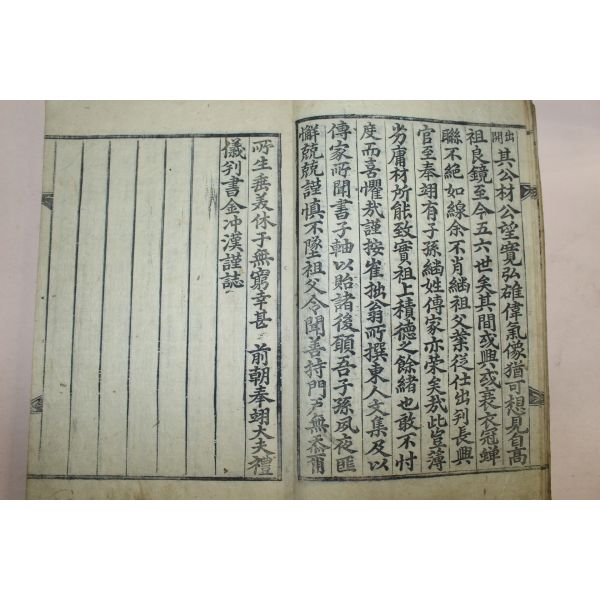 出開其公材公望寬弘雄偉氣像猶可想見自高
祖良鏡至今五六世矣其間或興或衰衣冠蟬
聯不絕如線余不肖繼祖父葉從仕出判長興
官至奉翊有子孫繼姓傳家亦榮矣哉此豈薄
劣庸材所能致實祖上積德之餘緒也敢不忖
度而喜懼哉謹按崔拙翁所撰東人文集及以
傳家所聞書于軸以貽諸後願吾子孫夙夜匪
懈兢兢謹慎不墜祖父令聞善持門戶無忝爾
所生垂美休于無窮幸甚 前朝奉翊大夫禮
儀判書金冲漢謹誌